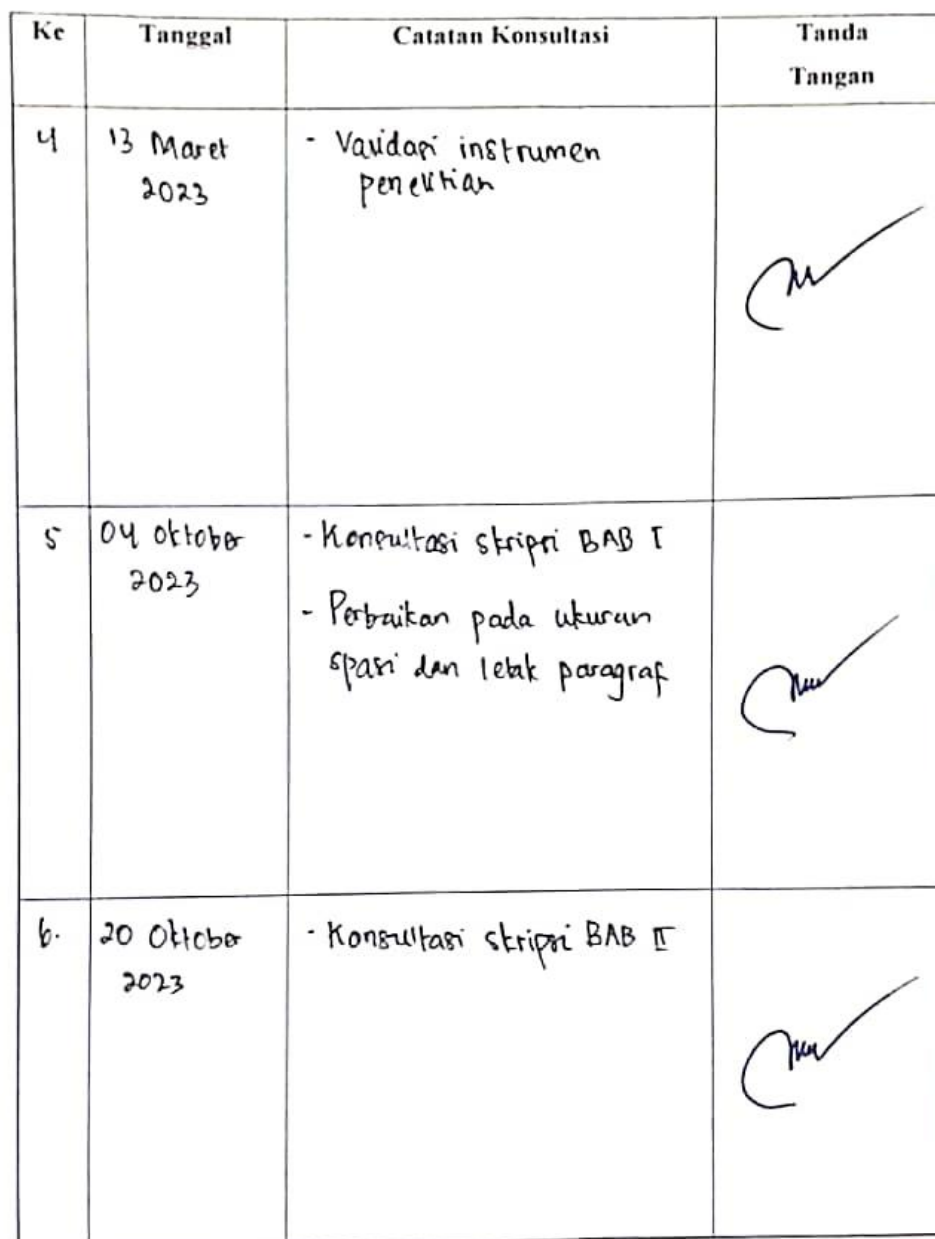 Ke Tanggal Catatan Konsultasi Tanda
Tangan
4 13 Maret - Validasi instrumen
2023 penelitian
5 04 Oktober - Konsultasi skripsi BAB I
2023
- Perbaikan pada ukuran
spasi dan letak paragraf
6. 20 Oktober - Konsultasi skripsi BAB II
2023